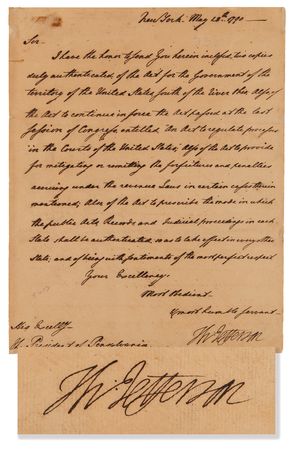 New York. May 28th 1790
Sir
I have the honor to send you herein inclosed, two copies
duly authenticated of the Act for the Government of the
territory of the United States South of the River Ohio. Also of
the Act to continue in force the Act passed at the last
Session of Congress entitled "An Act to regulate processes
in the Courts of the United States; Also of the Act to provide
for mitigating or remitting the forfeitures and penalties
accruing under the revenue Laws in certain cases therein
mentioned; Also of the Act to prescribe the mode in which
the public Acts Records and Judicial proceedings in each
State shall be authenticated, so as to take effect in every other
State, and of being with sentiments of the most perfect respect
Your Excellency's
Most Obedient
& most humble servant
Th: Jefferson
His Excelly
The President of Pensylvania
Th: Jefferson